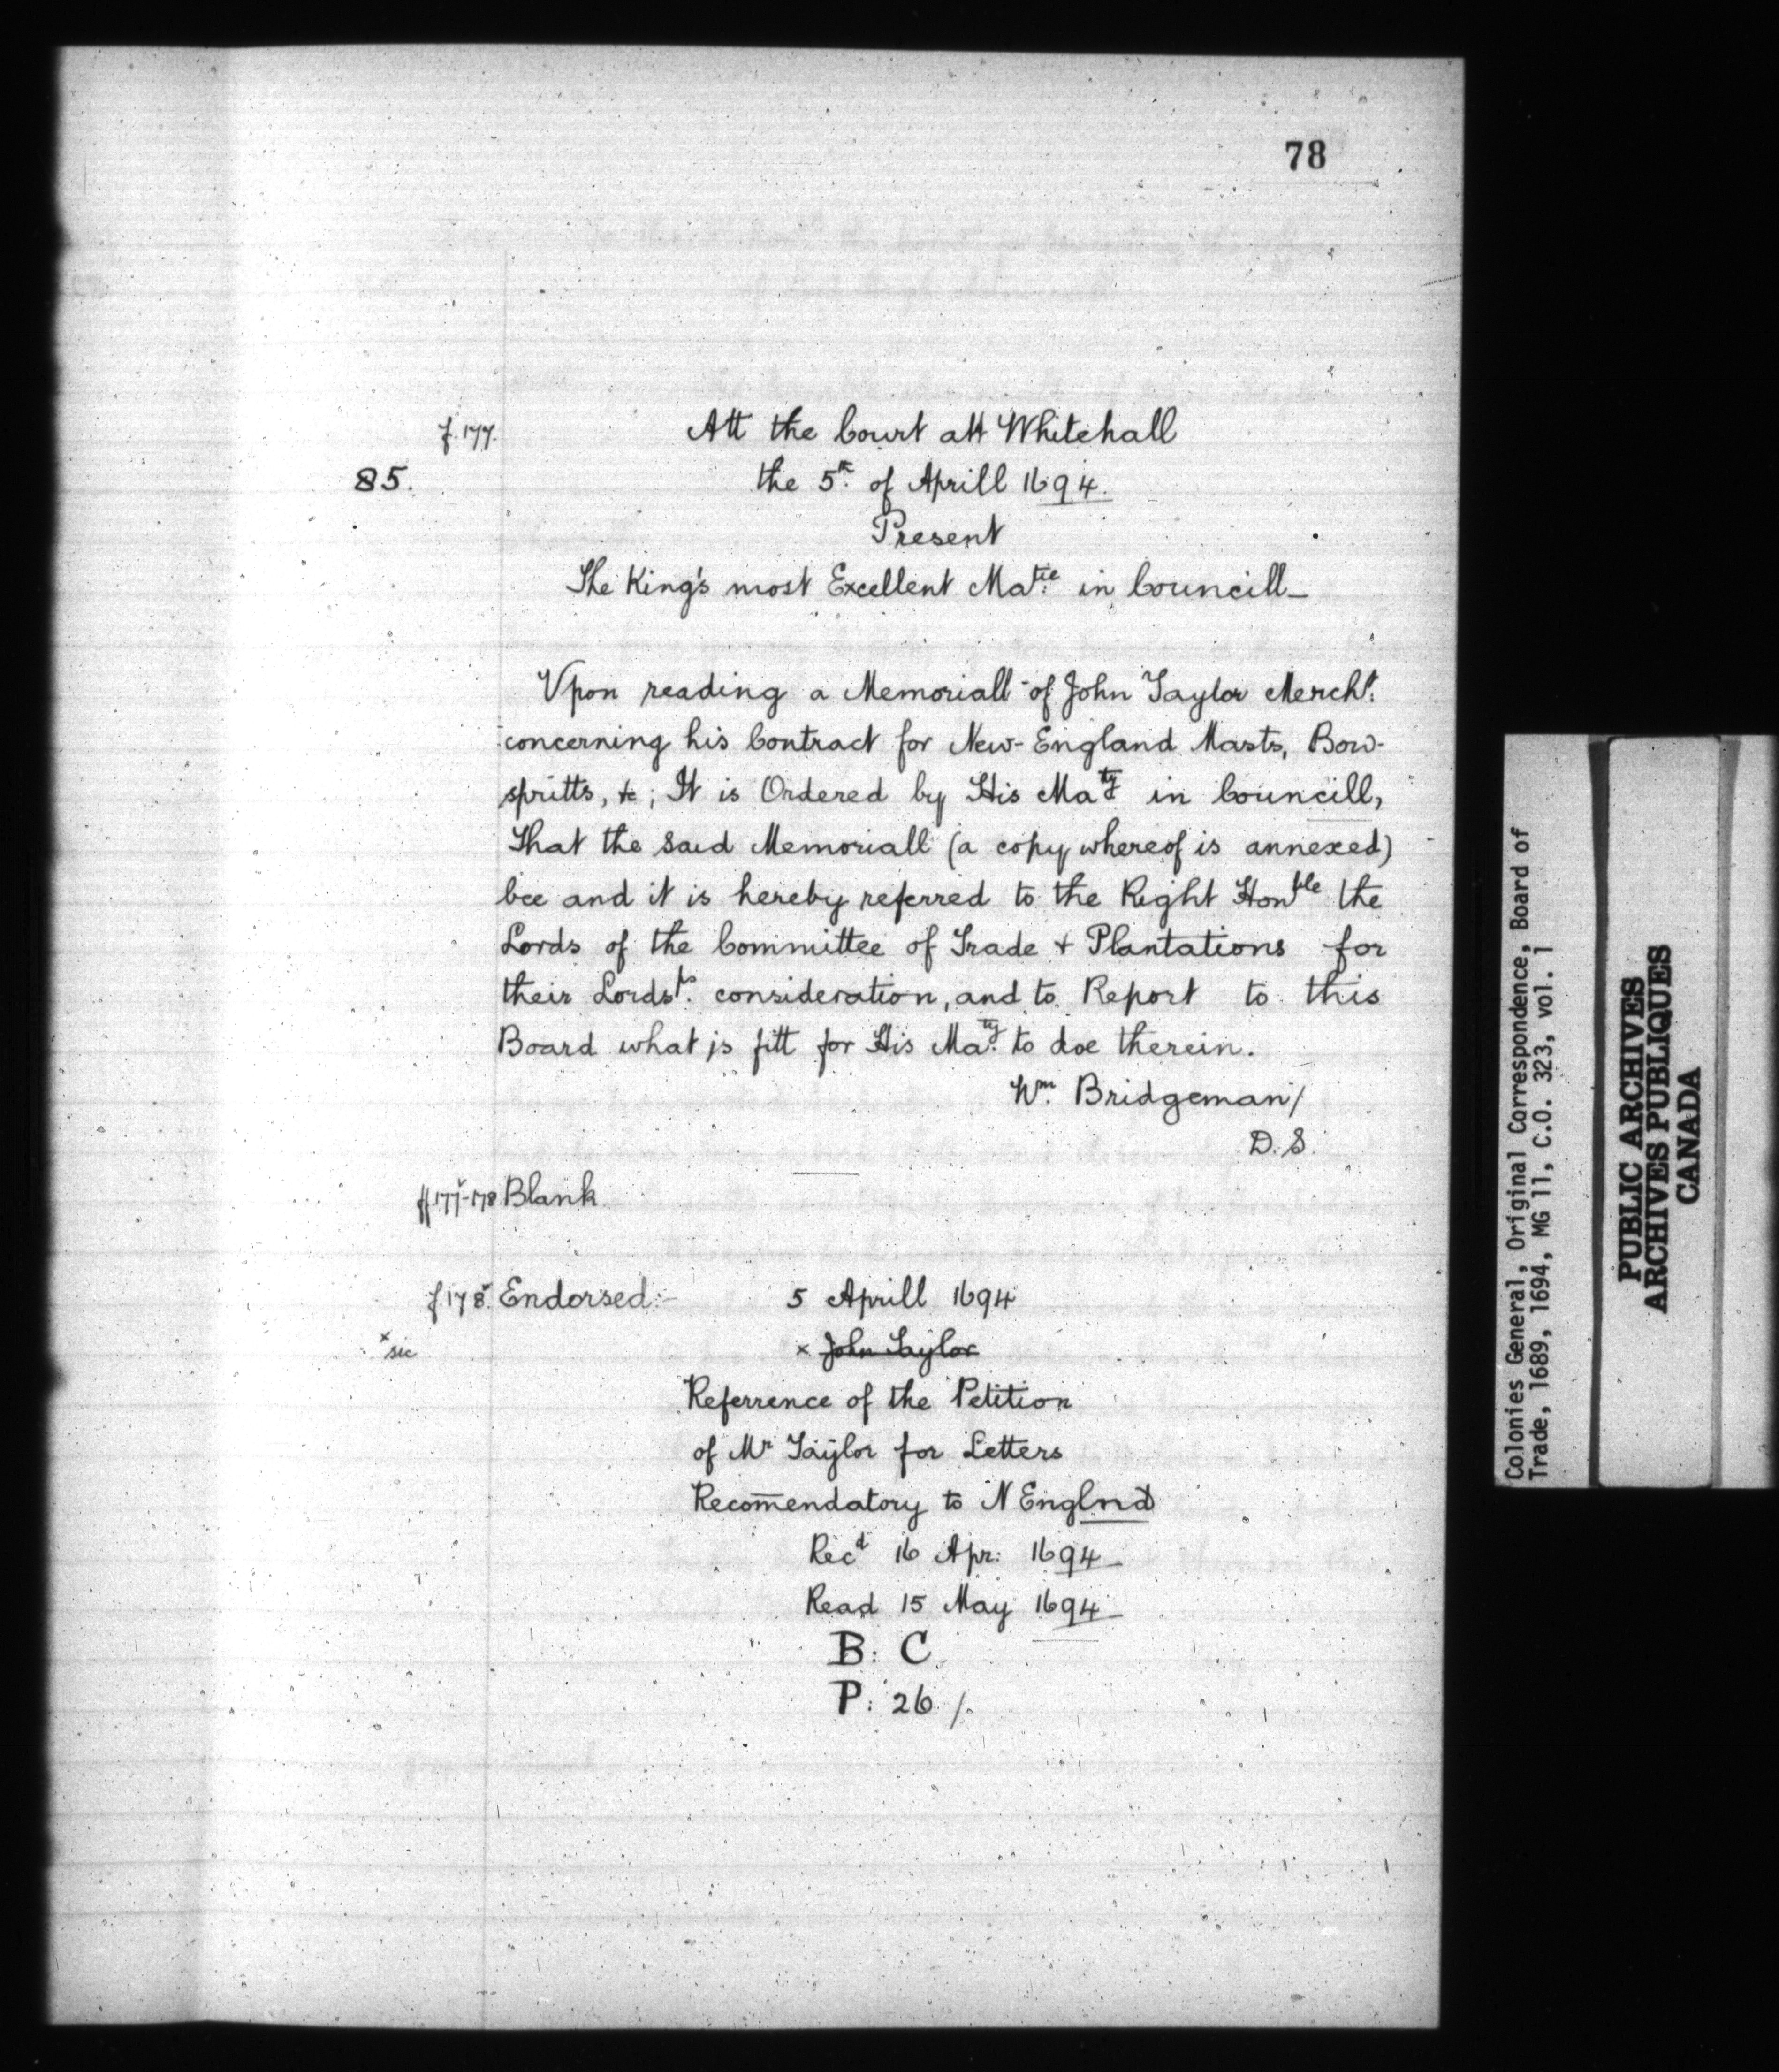 78
f. 177.
Att the Court att Whitehall
85.
the 5th. of Aprill 1694.
Present
The King's most Excellent Matie. in Councill_
Vpon reading a Memoriall of John Taylor Mercht.
concerning his Contract for New-England Masts, Bow-
spritts, &c; It is Ordered by His Maty in Councill,
That the said Memoriall (a copy whereof is annexed)
bee and it is hereby referred to the Right Honble the
Lords of the Committee of Trade + Plantations for
their Lordsps. consideration, and to Report to this
Board what is fitt for His Maty. to doe therein.
Wm. Bridgeman/
D. S.
ff. 177v-178 Blank
f 178v. Endorsed:-
5 Aprill 1694
x sic
x John Taylor
Referrence of the Petition
of Mr Taylor for Letters
Recomendatory to N Englnd
Recd 16 Apr: 1694_
Read 15 May 1694_
B: C
P: 26 /.
Colonies General, Original Correspondence, Board of
Trade, 1689, 1694, MG 11, C.O. 323, vol. 1
PUBLIC ARCHIVES
ARCHIVES PUBLIQUES
CANADA